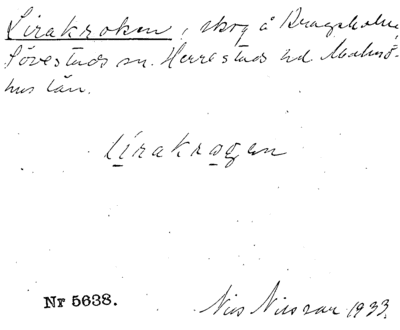 Lirakroken, skog å Bragesholm,
Sövestads sn. Herrestads hd Malmö-
hus län.
Lirakrogen
Nr 5638.
Nils Nilsson 1933.